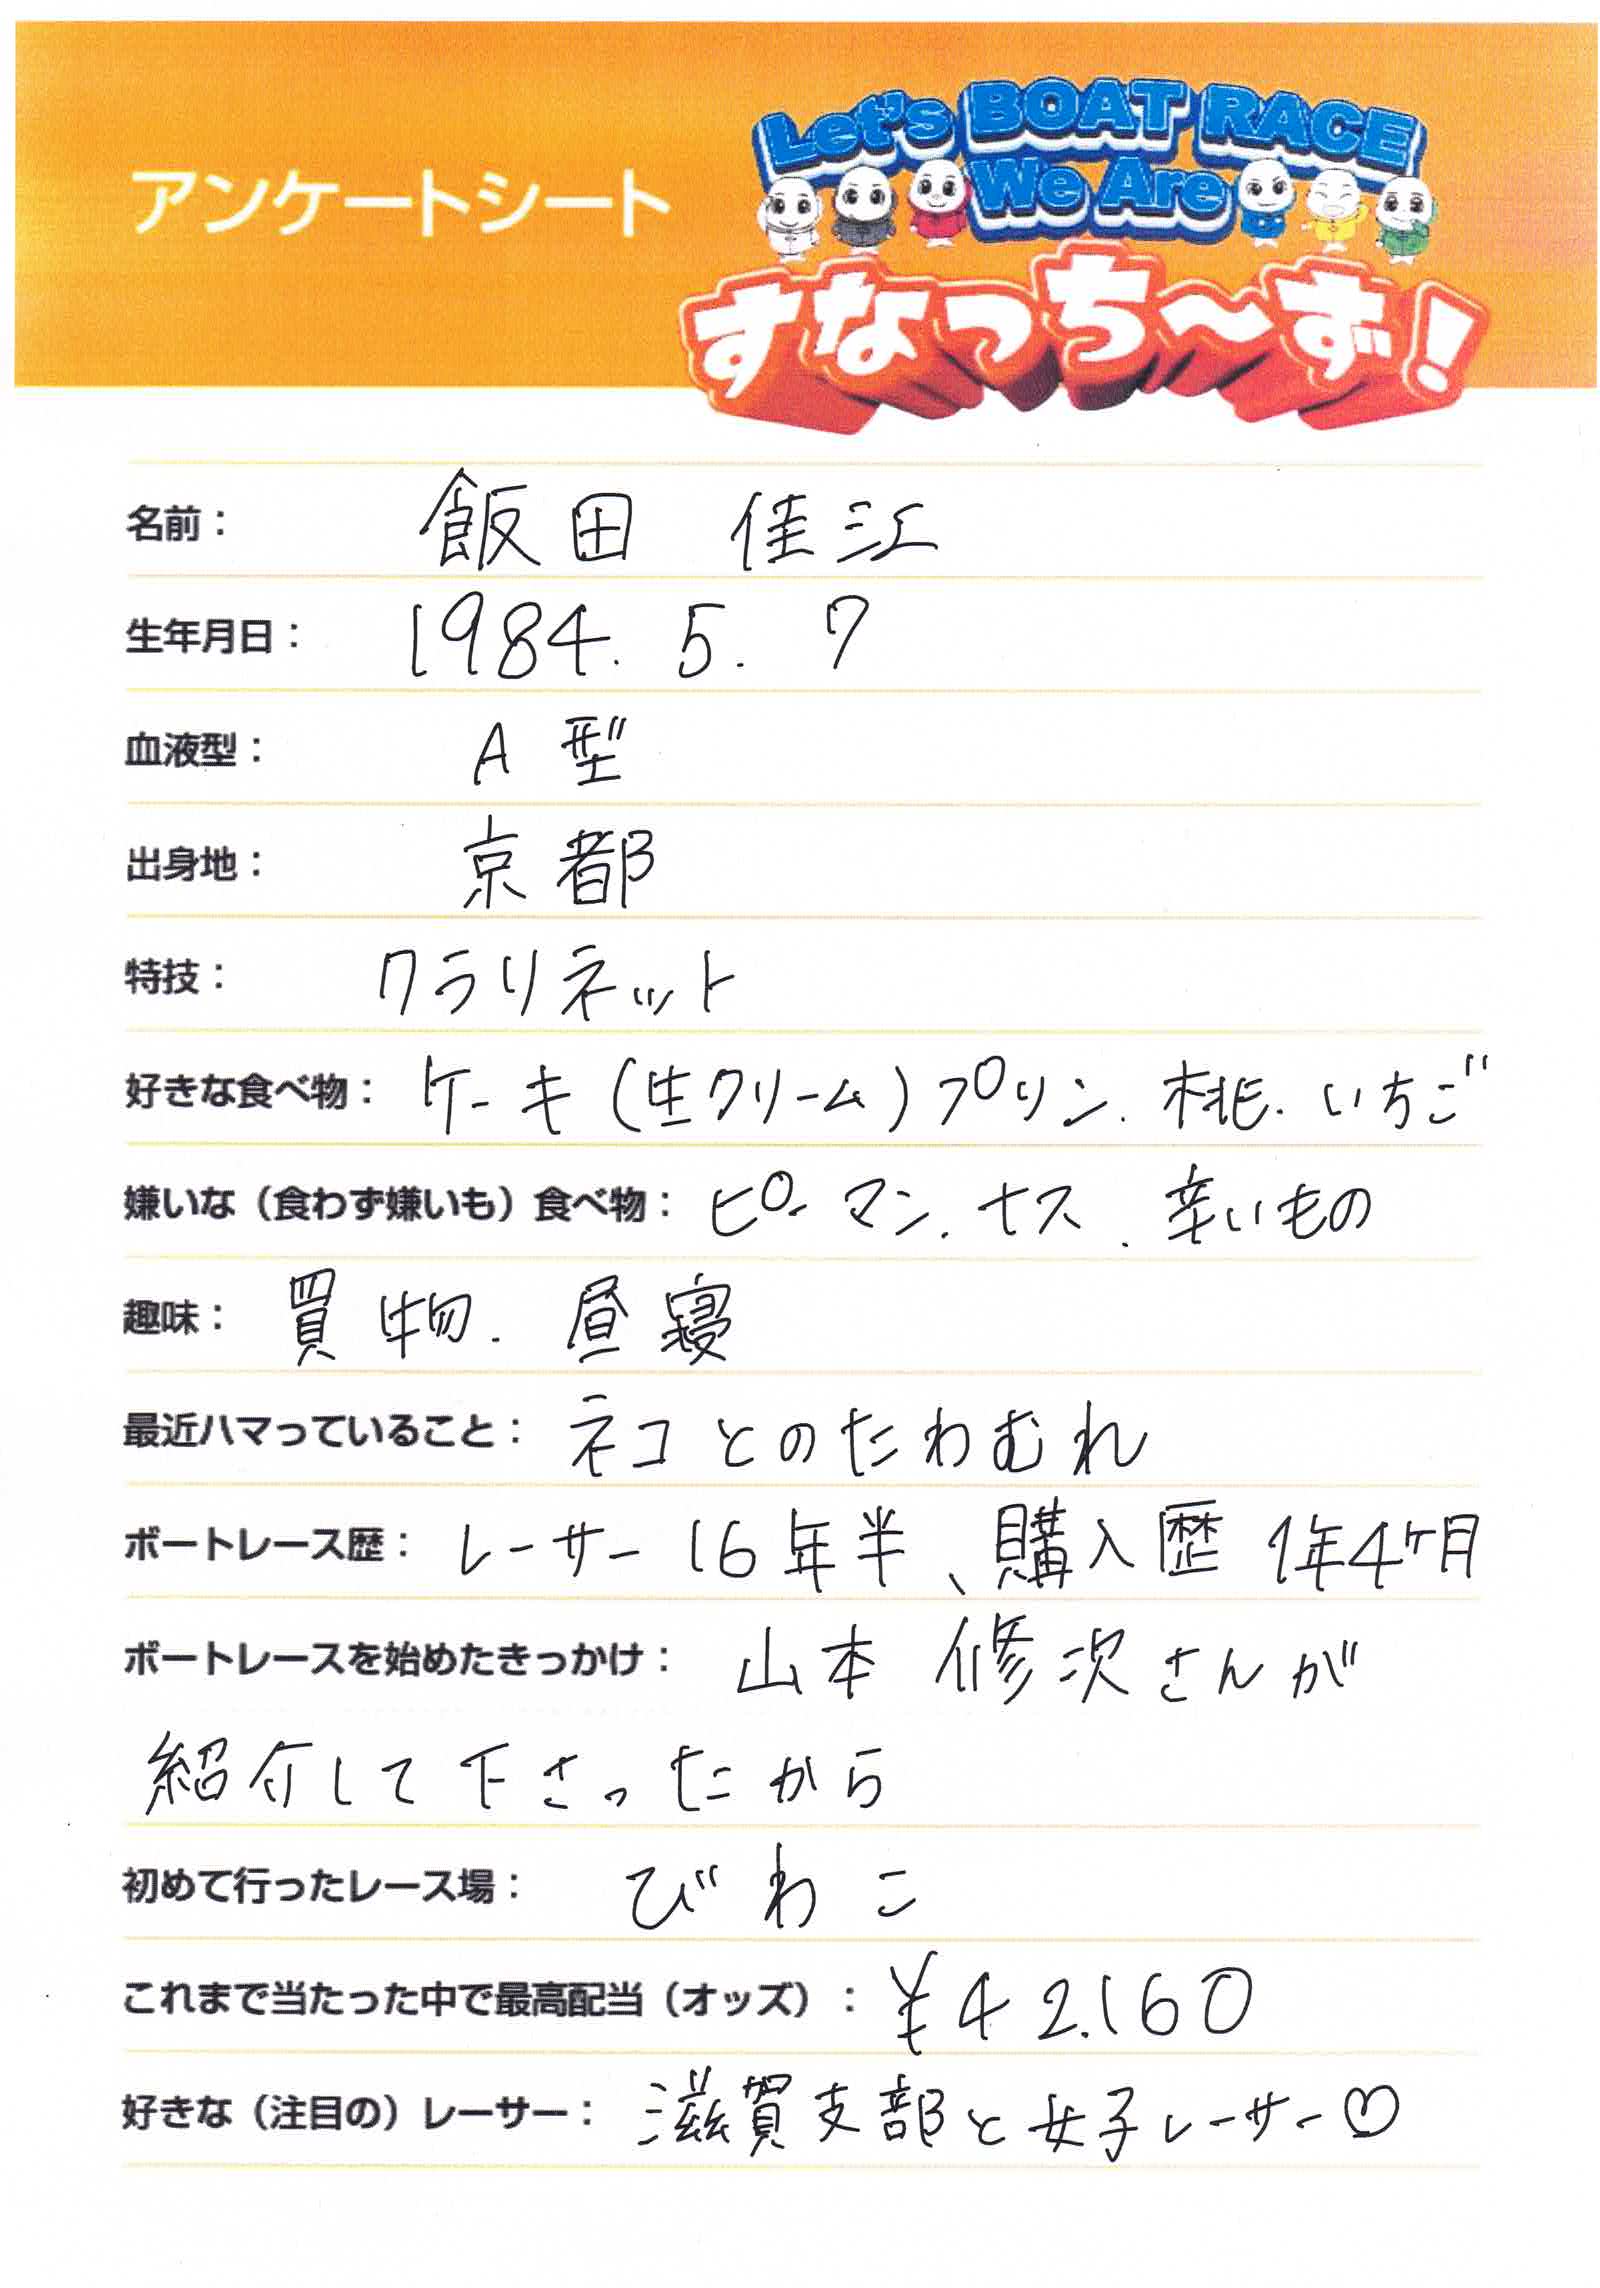 Let's BOAT RACE
We Are
アンケートシート
すなっち〜ず!
名前: 飯田 佳江
生年月日: 1984. 5. 7
血液型: A型
出身地: 京都
特技: クラリネット
好きな食べ物: ケーキ(生クリーム)プリン. 桃. いちご
嫌いな(食わず嫌いも)食べ物: ピーマン. ナス. 辛いもの
趣味: 買物. 昼寝
最近ハマっていること: ネコとのたわむれ
ボートレース歴: レーサー16年半、購入歴 1年4ヶ月
ボートレースを始めたきっかけ: 山本 修次さんが
紹介して下さったから
初めて行ったレース場: びわこ
これまで当たった中で最高配当(オッズ): ¥42.160
好きな(注目の)レーサー: 滋賀支部と女子レーサー♡